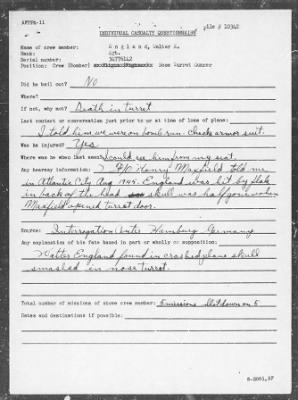 AFPPA-11
File # 10342
INDIVIDUAL CASUALTY QUESTIONNAIRE
Name of crew member: England, Walter E.
Rank: Sgt.
Serial number: 34776142
Position: Crew (Bomber) Nose Turret Gunner
Did he bail out? No
Where?
If not, why not? Death in turret
Last contact or conversation just prior to or at time of loss of plane:
I told him we were on bomb run. Check armor suit.
Was he injured? Yes
Where was he when last seen? I could see him from my seat.
Any hearsay information: F/O Henry Maxfield told me
in Atlantic City Aug 1945. England was hit by flak
in back of the head skull was half gone when
Maxfield opened turret door.
Source: Interrogation Hamburg Germany
Any explanation of his fate based in part or wholly on supposition:
Walter England found in crashed plane skull
smashed in nose turret.
Total number of missions of above crew member: 5 missions Shot down on 5
Dates and destinations if possible:
6-3861,AF